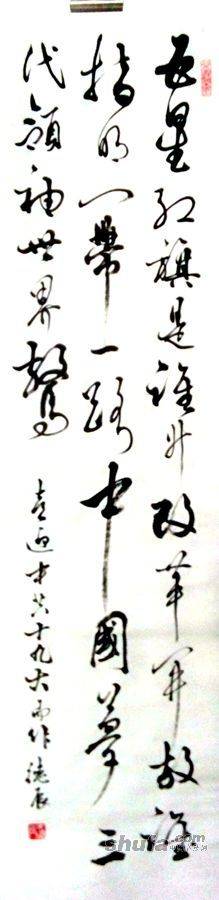 五星红旗是谁升改革开放谁
指明一带一路中國夢三
代領袖世界驚
喜迎中共十九大而作 德辰
shufa.com